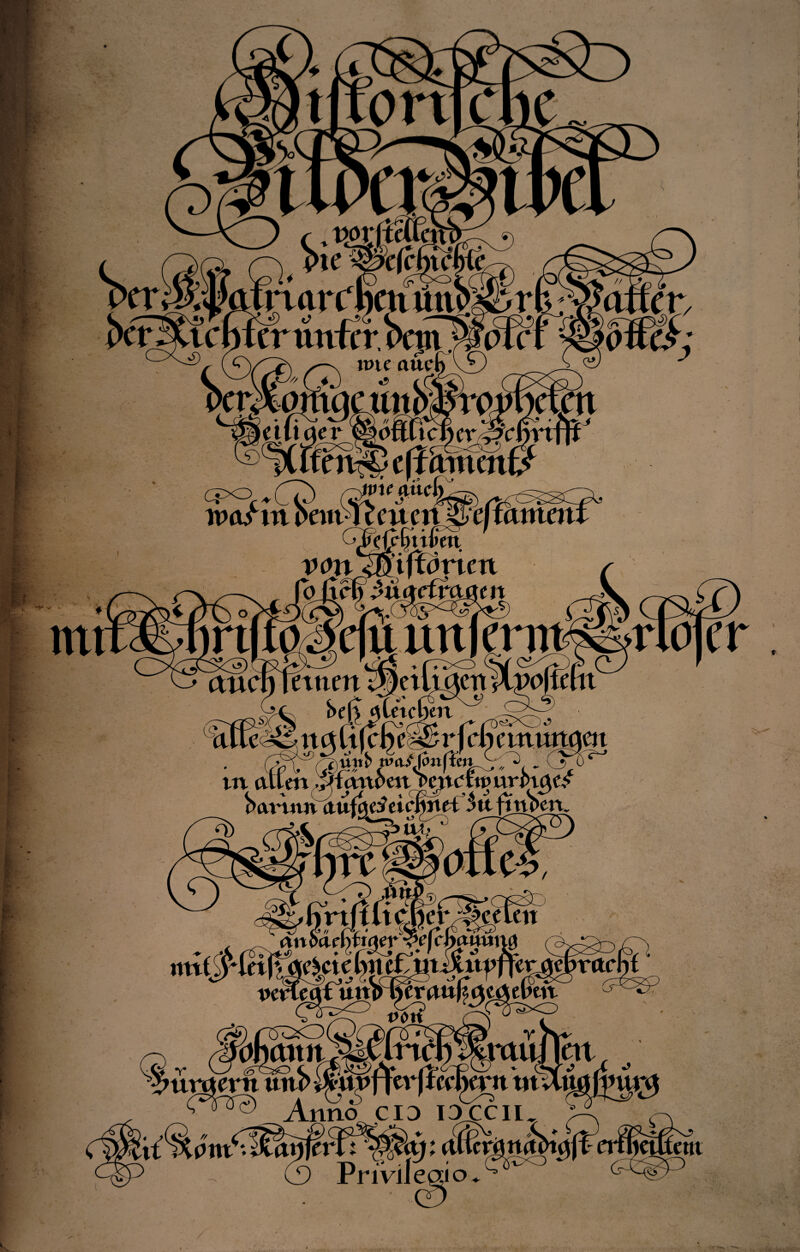 Historische
Bilder Bibel
vorstellend
die Geschichte
der H. Patriarchen und Ertz-Vätter,
der Richter unter dem Volck Gottes;
wie auch
der Könige und Propheten
Heiliger Göttlicher Schrifft
Alten Testaments
wie auch
was in dem Neuen Testament
Geschihen
von Histörien
so sich Zugetragen
mit Christo Jesu unserm Erlöser
auch seinen Heiligen Aposteln
deß gleichen
alle Englische Erscheinungen
und was sonsten
in allen Ständen denckwürdiges
darinn aufgezeichnet zu finden.
zu
Ehre Gottes,
und
Christlicher Seelen
andächtiger Beschauung
mit Fleiß gezeichnet in Kupffer gebracht
verlegt und heraußgegeben
von
Johann Ulrich Kraußen
Burgern und Kupfferstechern in Augspurg
Anno CIƆ IƆCCII.
Mit Röm: Kayserl: May: allergnädigst ertheiltem
Privilegio.